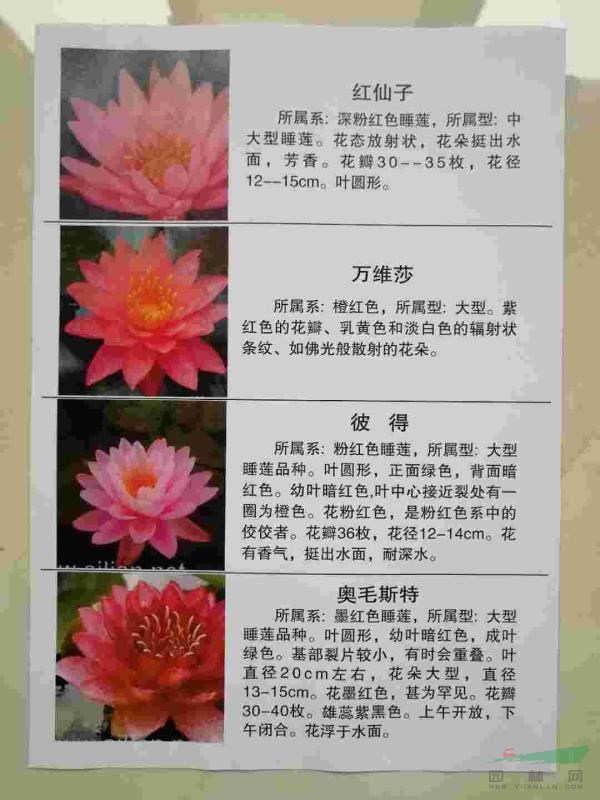 红仙子
所属系：深粉红色睡莲，所属型：中
大型睡莲。花态放射状，花朵挺出水
面，芳香。花瓣30--35枚，花径
12--15cm。叶圆形。
万维莎
所属系：橙红色，所属型：大型。紫
红色的花瓣、乳黄色和淡白色的辐射状
条纹、如佛光般散射的花朵。
彼 得
所属系：粉红色睡莲，所属型：大型
睡莲品种。叶圆形，正面绿色，背面暗
红色。幼叶暗红色,叶中心接近裂处有一
圈为橙色。花粉红色，是粉红色系中的
佼佼者。花瓣36枚，花径12-14cm。花
有香气，挺出水面，耐深水。
w.ailian.net
奥毛斯特
所属系：墨红色睡莲，所属型：大型
睡莲品种。叶圆形，幼叶暗红色，成叶
绿色。基部裂片较小，有时会重叠。叶
直径20cm左右，花朵大型，直径
13-15cm。花墨红色，甚为罕见。花瓣
30-40枚。雄蕊紫黑色。上午开放，下
午闭合。花浮于水面。
园林网
WWW.YUANLIN.COM